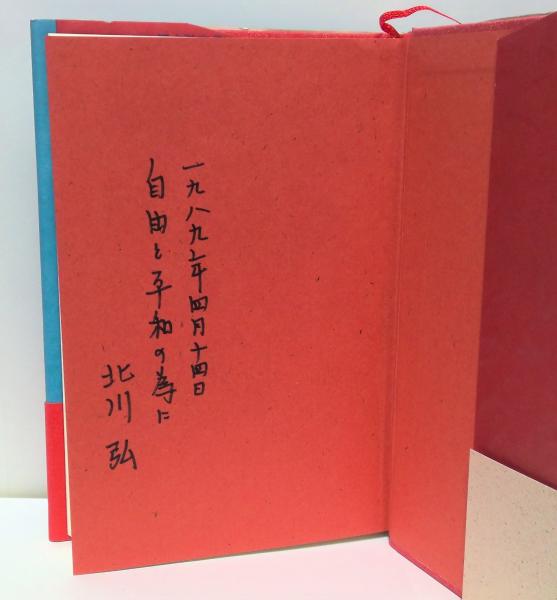 一九八九年四月十四日
自由と平和の為に
北川弘